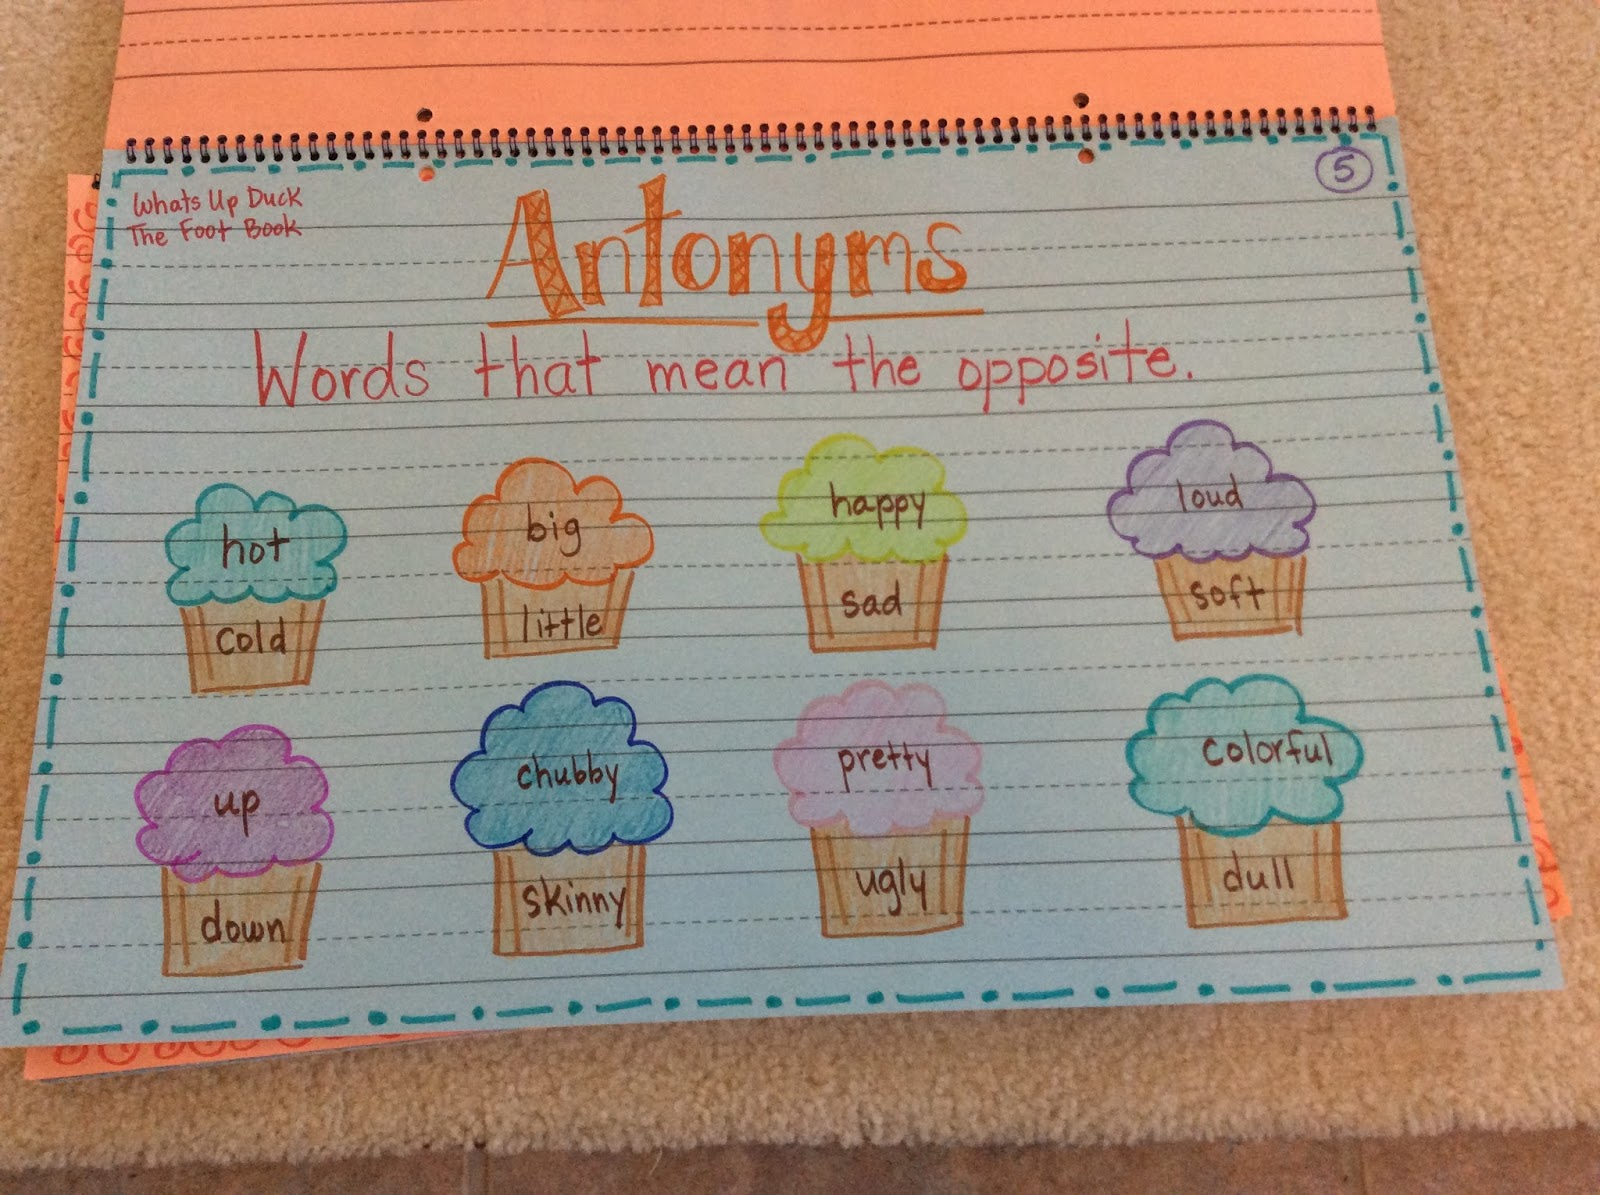 Whats Up Duck
The Foot Book
5
Antonyms
Words that mean the opposite.
hot
cold
big
little
happy
sad
loud
soft
up
down
chubby
skinny
pretty
ugly
colorful
dull